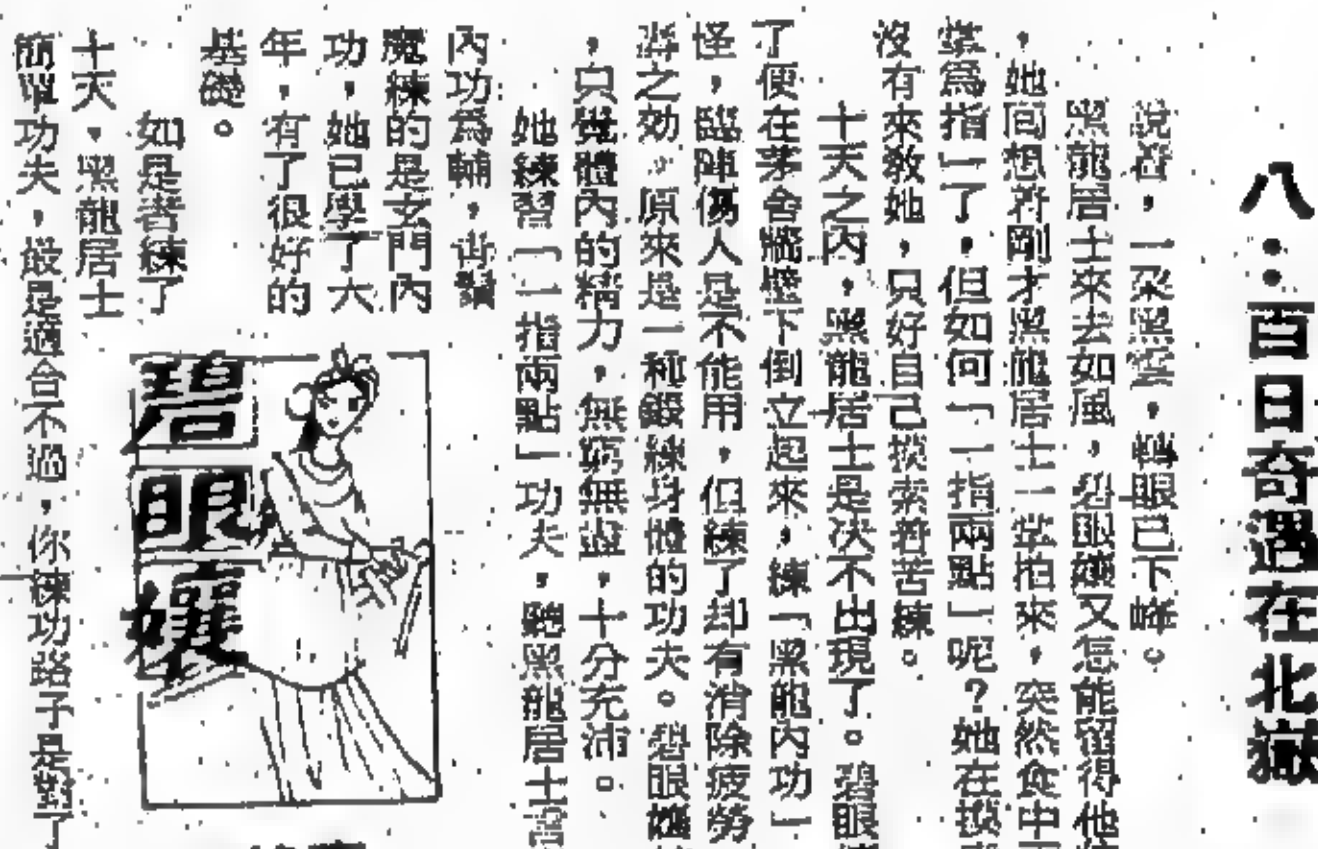 八：百日奇遇在北嶽
說着，一朶黑雲，轉眼已下峰。
黑龍居士來去如風，碧眼孃又怎能留得他
，她回想着剛才黑龍居士一掌拍來，突然食中
掌爲指」了，但如何「一指兩點」呢？她在摸
沒有來教她，只好自己摸索着苦練。
十天之內，黑龍居士是決不出現了。碧眼
了便在茅舍牆壁下倒立起來，練「黑龍內功」
怪，臨陣傷人是不能用，但練了却有消除疲勞
之効，原來是一種鍛練身體的功夫。碧眼孃
，只覺體內的精力，無窮無盡，十分充沛。
她練習「一指兩點」功夫，聽黑龍居士
內功爲輔，
魔練的是玄門內
功，她已學了六
年，有了很好的
基礎。
如是者練了
十天，黑龍居士
簡單功夫，最是適合不過，你練功路子是對了
碧眼孃